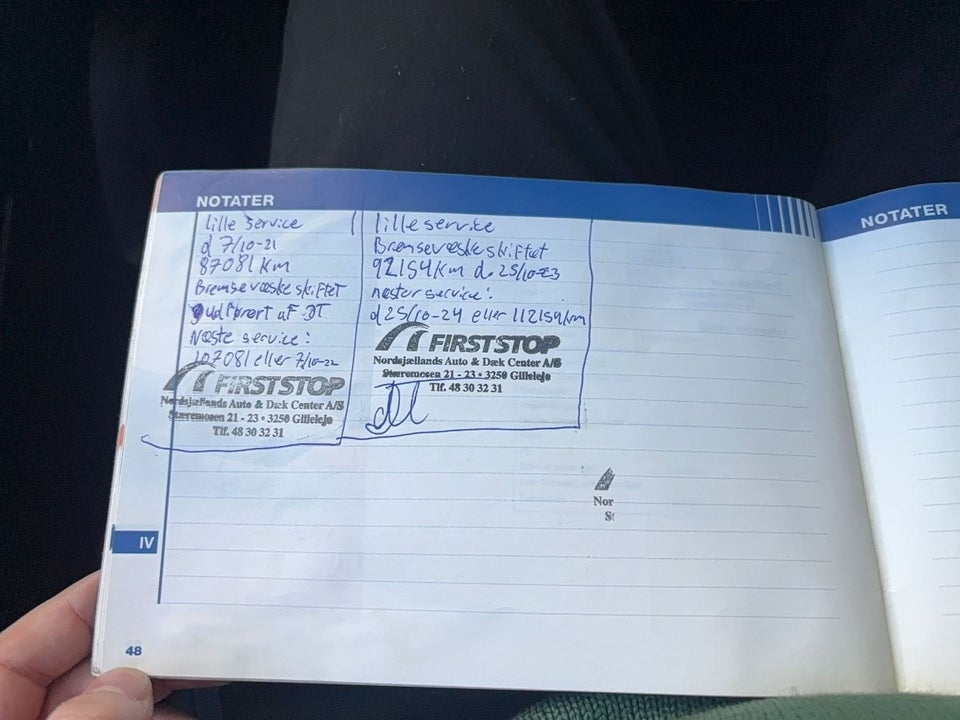 NOTATER
lille service
d 7/10-21
87081 km
Bremsevæske skiftet
udført af DT
Næste service:
107081 eller 7/10-22
FIRSTSTOP
Nordsjællands Auto & Dæk Center A/S
Stæremosen 21 - 23 • 3250 Gilleleje
Tlf. 48 30 32 31
lille service
Bremsevæske skiftet
92154 km d. 25/10-23
næste service:
d 25/10-24 eller 112154 km
FIRSTSTOP
Nordsjællands Auto & Dæk Center A/S
Stæremosen 21 - 23 • 3250 Gilleleje
Tlf. 48 30 32 31
Nor
St
IV
48
NOTATER